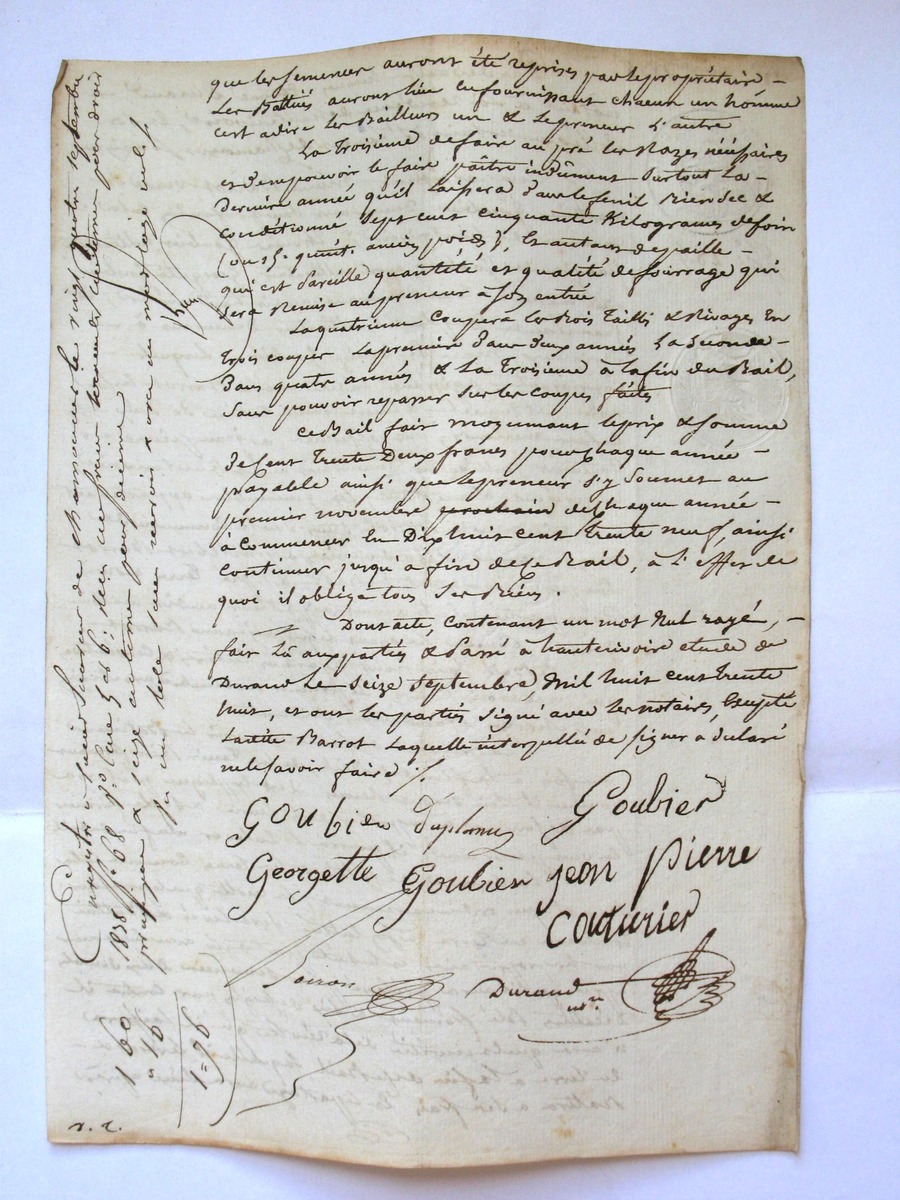 que les semences auront été reprises par le propriétaire –
Les Battiés auront lieu en fournissant chacun un homme
c'est adire les Bailleurs un & le preneur l'autre
La Troisième de faire au pré les Razes nécéssaires
et d'en pouvoir le faire paître indûment surtout la –
derniere année qu'il laissera dans le fenil Rier sec &
conditionné sept cent cinquante Kilogrames de foin
(ou 15. quint. anciés poids), et autant de paille –
qui est Pareille quantitété et qualité de fourrage qui
sera Remise au preneur à son entrée
La quatrieme coupera les Bois Taillis & Rivages En
trois coupes la premiere dans deux années la seconde –
Dans quatre années & La Troisieme à la fin du Bail,
sans pouvoir repasser sur les coupes faites
ce Bail fait moyennant le prix & somme
de Cent Trente Deux francs pour chaque année –
payable ainsi que le preneur s'y soumet au
premier novembre prochain de chaque année –
à commencer En Dix huit cent trente neuf, ainsi
continuer jusqu'à fin de ce Bail, à l'effet de
quoi il oblige tous ses Biens.
Dont acte, contenant un mot Nul rayé, –
fait Lû aux parties & Passé à hauterivoire etude de
Durand Le seize septembre, Mil huit cent trente
huit, et ont les parties signé avec les notaires, Excepté
Barrot Laquelle interpellée de signer a declaré
ne le savoir faire ./.
Goubier Duplomy Goubier
Georgette Goubier jean pierre
Couturier
Durand
nre
Enregistré à saint Laurent de chamousset le vingt quatre septembre
1838 fo. 68 Ro. Case 5 et 6: reçu un franc soixante centimes pour droit
principal & seize centimes pour décime
1 60
" 16
1=76